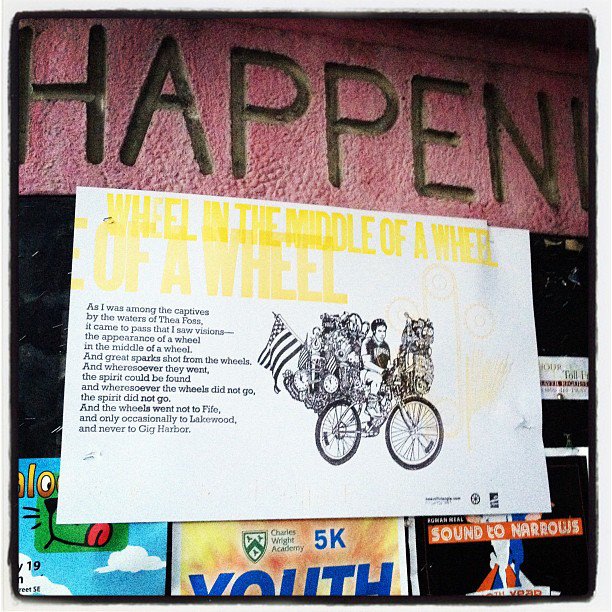 HAPPENI
WHEEL IN THE MIDDLE OF A WHEEL
E OF A WHEEL
As I was among the captives
by the waters of Thea Foss,
it came to pass that I saw visions—
the appearance of a wheel
in the middle of a wheel.
And great sparks shot from the wheels.
And wheresoever they went,
the spirit could be found
and wheresoever the wheels did not go,
the spirit did not go.
And the wheels went not to Fife,
and only occasionally to Lakewood,
and never to Gig Harbor.
OUR
Toll-F
alo
y 19
reet SE
Charles
Wright
Academy
5K
YOUTH
ROMAN MEAL
SOUND to NARROWS
YEAR